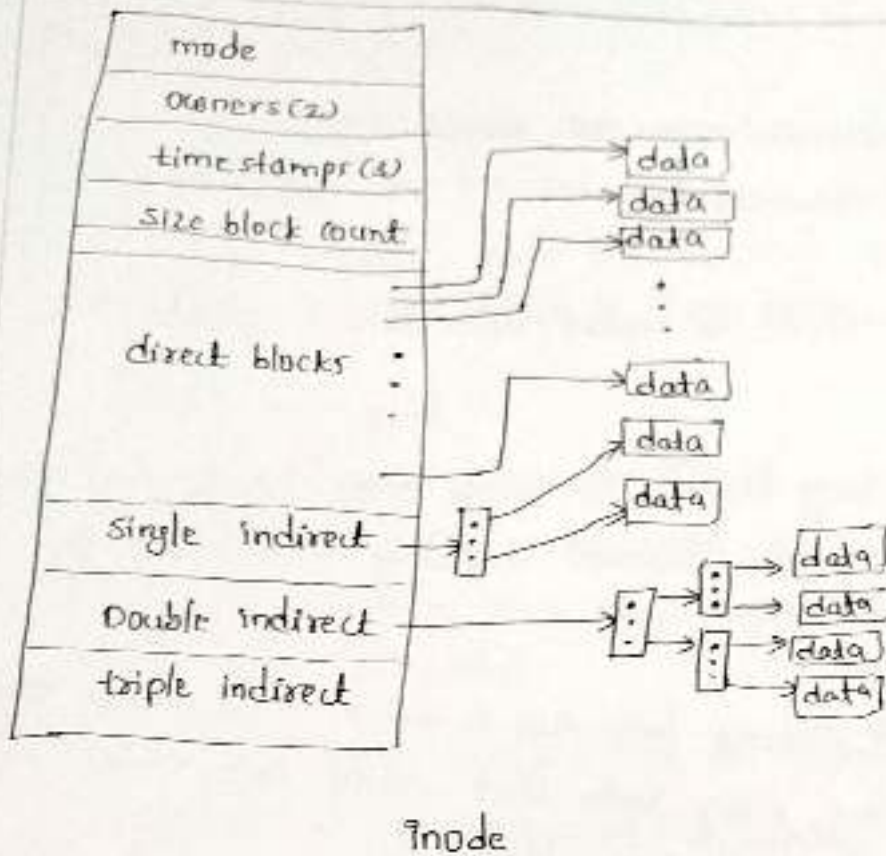 mode
owners(2)
time stamps (3)
size block count
direct blocks
single indirect
Double indirect
triple indirect
data
data
data
data
data
data
data
data
data
data
Inode